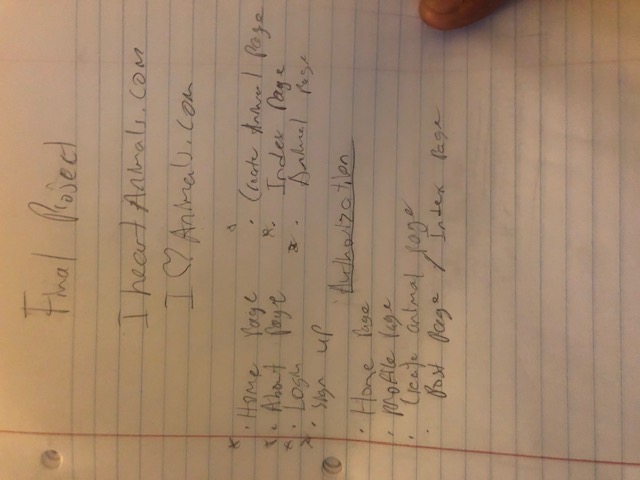 Final Project
I heart Animals.com
I ♡ Animals.com
* · Home Page
* · About page
* · Login
* · Sign up
· Create Animal Page
* · Index Page
* · Animal Page
Authorization
· Home Page
· Profile Page
· Create animal page
· Post Page / Index Page